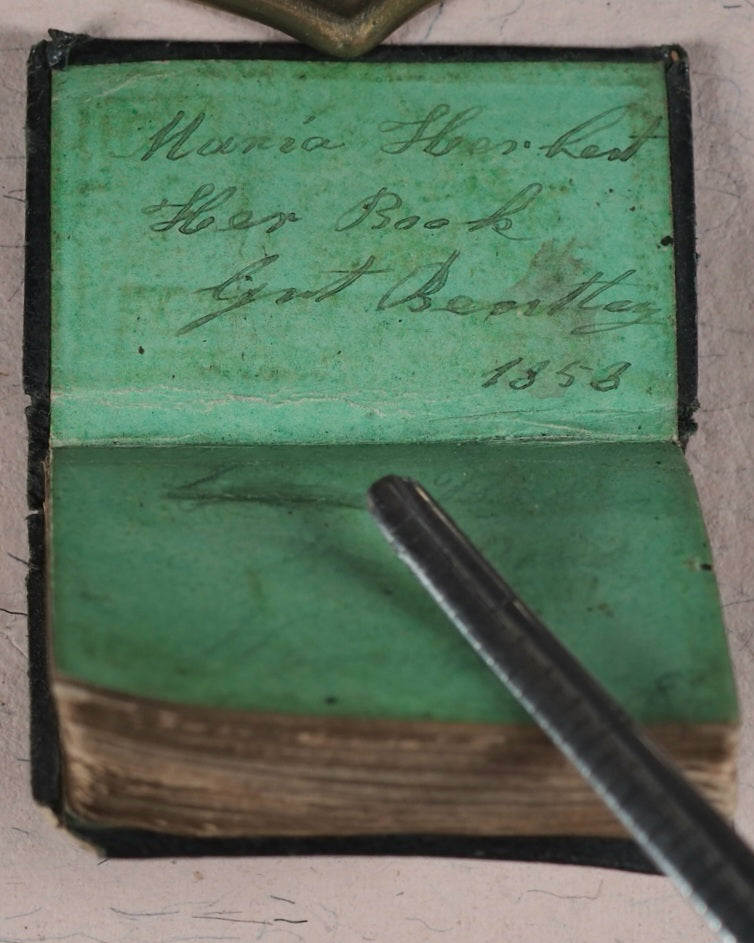 Maria Herbert
Her Book
Grt Bentley
1858